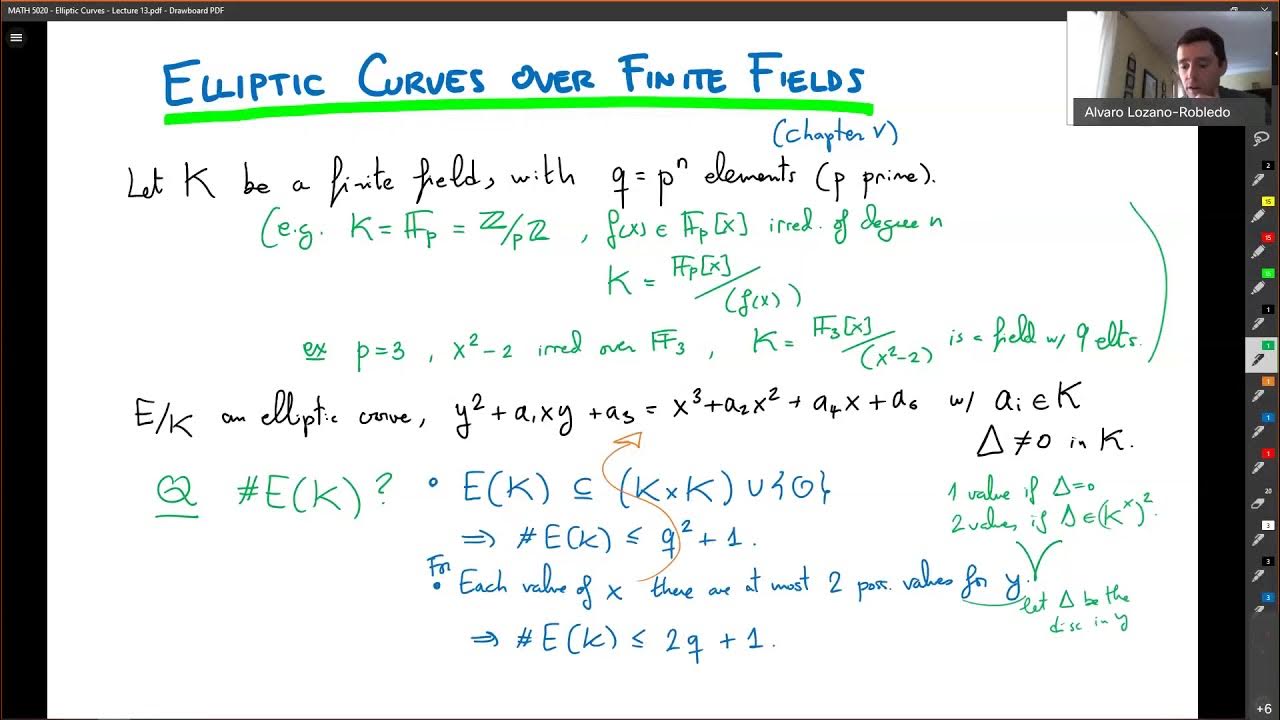 MATH 5020 - Elliptic Curves - Lecture 13.pdf - Drawboard PDF
Alvaro Lozano-Robledo
ELLIPTIC CURVES OVER FINITE FIELDS
(Chapter V)
Let K be a finite field, with q = pⁿ elements (p prime).
(e.g. K = 𝔽p = ℤ/pℤ , f(x) ∈ 𝔽p[x] irred. of degree n
K = 𝔽p[x]/(f(x))
ex p=3 , x²-2 irred over 𝔽₃ , K = 𝔽₃[x]/(x²-2) is a field w/ 9 elts. )
E/K an elliptic curve, y²+a₁xy+a₃ = x³+a₂x²+a₄x+a₆ w/ aᵢ ∈ K
Δ ≠ 0 in K.
Q #E(K)? • E(K) ⊆ (K×K) ∪ {O}
⇒ #E(K) ≤ q²+1.
1 value if Δ=0
2 values if Δ∈(K^×)².
• For Each value of x there are at most 2 poss. values for y.
let Δ be the
disc in y
⇒ #E(K) ≤ 2q+1.
+6